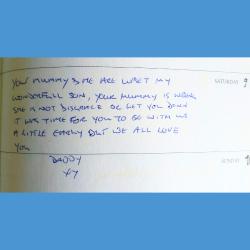 YOUR MUMMY & ME ARE UPSET MY
WONDERFULL SON, YOUR MUMMY IS WRONG
SHE IS NOT DISGRACE OR LET YOU DOWN
IT WAS TIME FOR YOU TO BE WITH US
A LITTLE EARLY BUT WE ALL LOVE
YOU
DADDY
XX
SATURDAY 9
SUNDAY